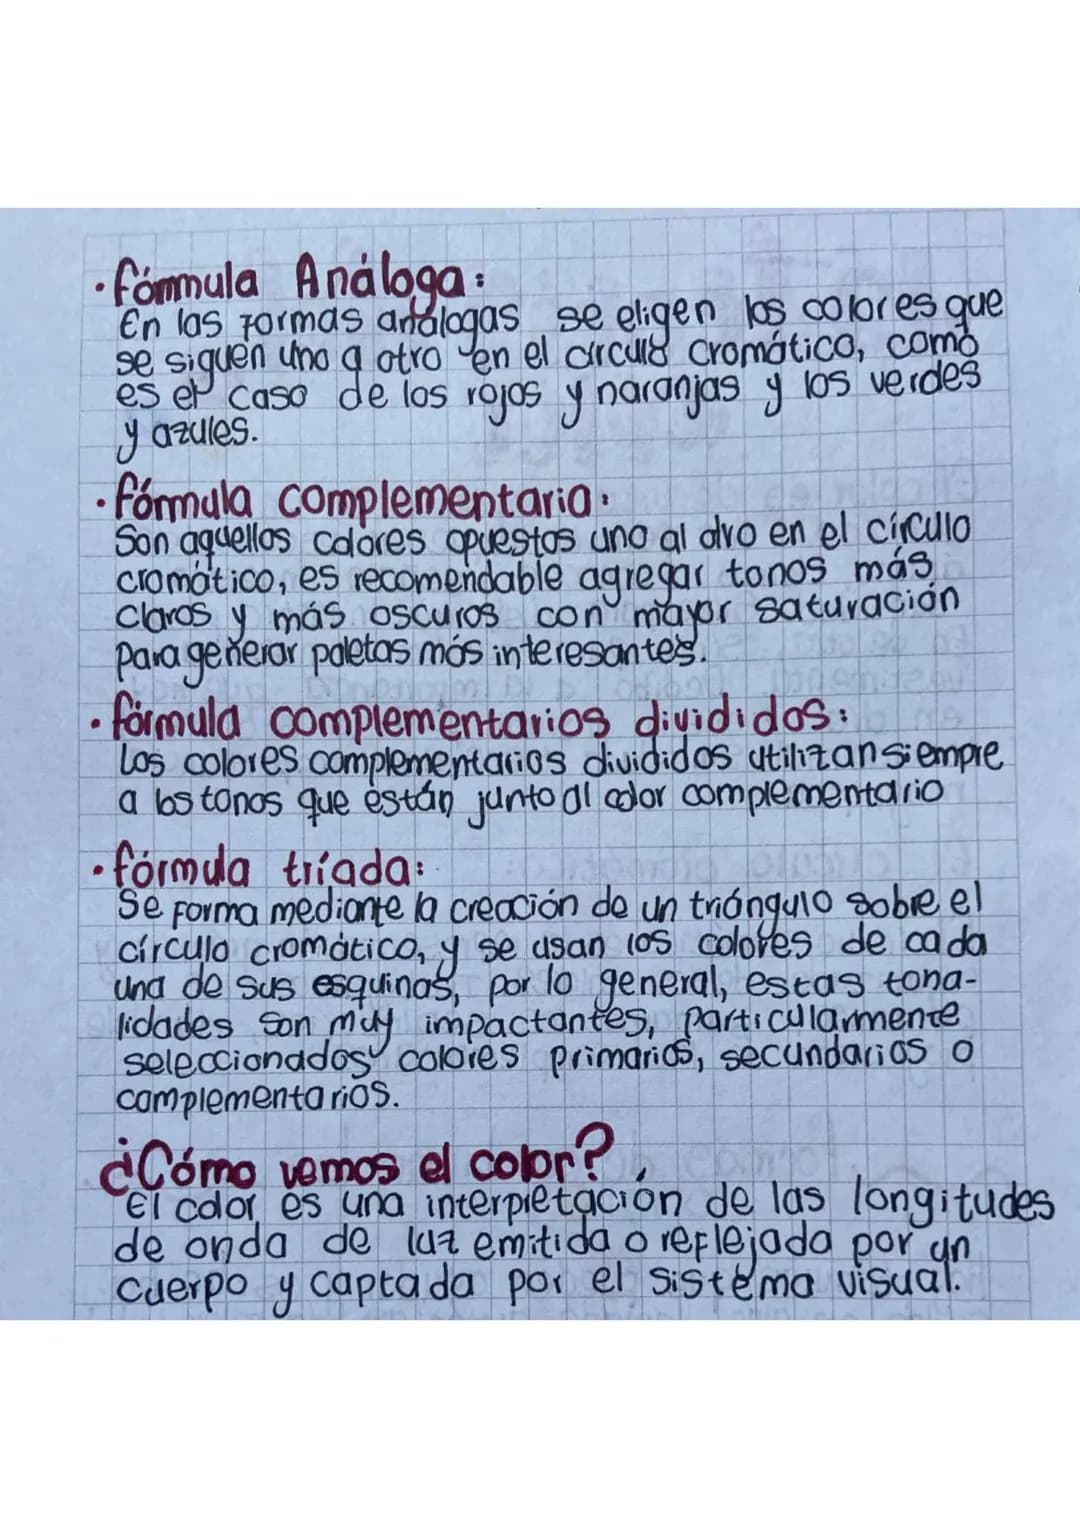 · fórmula Análoga:
En las formas análogas se eligen los colores que
se siguen uno a otro en el círculo cromático, como
es el caso de los rojos y naranjas y los verdes
y azules.
· fórmula complementaria:
Son aquellos colores opuestos uno al otro en el círculo
cromático, es recomendable agregar tonos más
claros y más oscuros con mayor saturación
para generar paletas más interesantes.
· fórmula complementarios divididos:
Los colores complementarios divididos utilizan siempre
a los tonos que están junto al color complementario
· fórmula tríada:
Se forma mediante la creación de un triángulo sobre el
círculo cromático, y se usan los colores de cada
una de sus esquinas, por lo general, estas tona-
lidades son muy impactantes, particularmente
seleccionados colores primarios, secundarios o
complementarios.
¿Cómo vemos el color?
El color es una interpretación de las longitudes
de onda de luz emitida o reflejada por un
cuerpo y captada por el sistema visual.